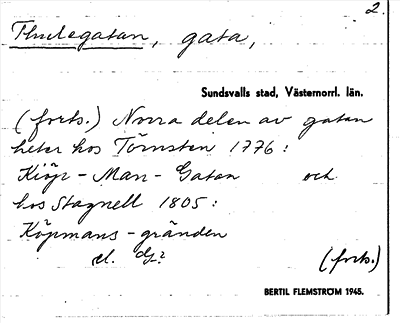 2.
Thulegatan, gata,
Sundsvalls stad, Västernorrl. län.
(forts.) Norra delen av gatan
heter hos Törnsten 1776:
Kiöp-Man-Gatan och
hos Stagnell 1805:
Köpmans-gränden
el.
(forts.)
BERTIL FLEMSTRÖM 1945.